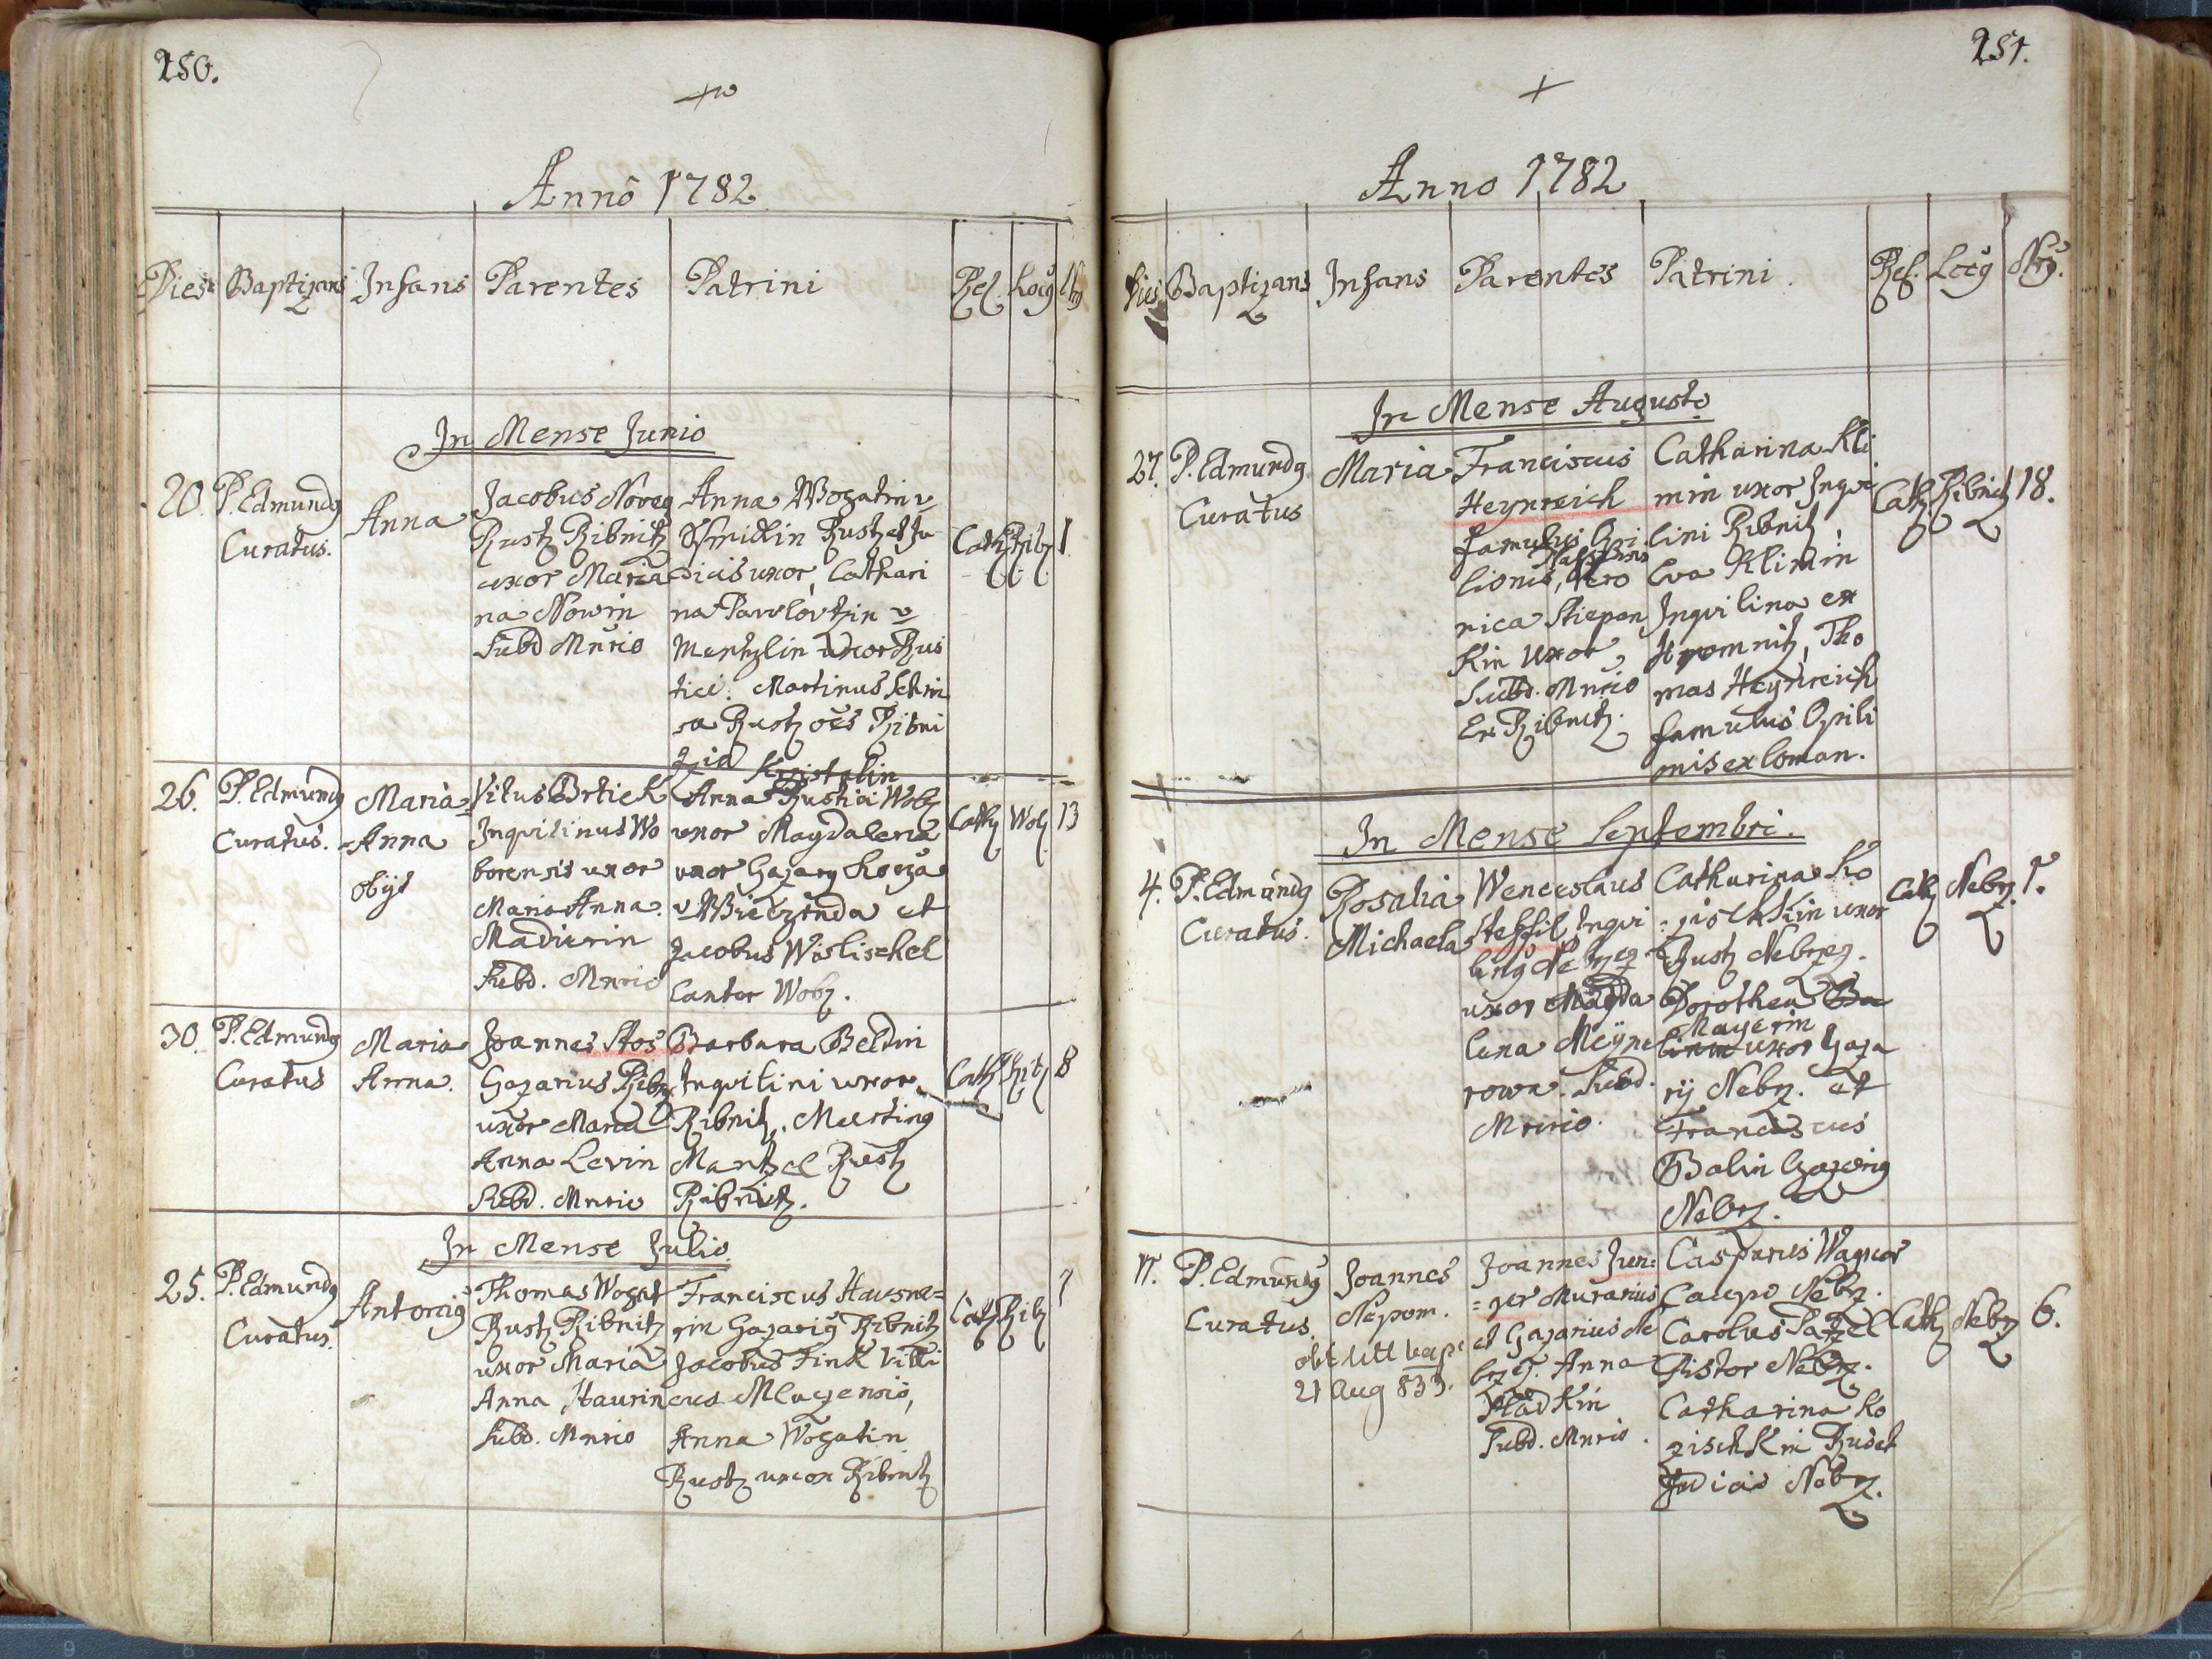 250.
Anno 1782
Dies Baptizans Infans Parentes Patrini Rel. Locg Nrg
In Mense Junio
20. P. Edmundg Curatus.
Anna
Jacobus Noveg
Rustg Ribnitz
uxor Maria
na Nowin
Subd Mnrio
Anna Wozatin v
Smidlin Rustg et Ju
dicis uxor, Cathari
na Pawlovtzin v
Mentzlin uxor Rus
tici. Martinus
ra Rustg oes Ribni
Cath Ribz 1
26. P. Edmundg
Curatus.
Maria=
=Anna
obijt
Vitus Brtick
Inqvilinus Wo
borensis uxor
Maria Anna
Madierin
Subd. Mnrio
Kristalin
Anna Rustici Wobz
uxor Magdalena
uxor Gazarg Kouza
v Wietzinda et
Jacobus Wislischel
Cantor Wobz.
Cath Wobz 13
30. P. Edmundg
Curatus
Maria
Anna.
Joannes Stos
Gazarius Ribz
uxor Maria
Anna Levin
Subd. Mnrio
Barbara Beldin
Inqvilini uxor
Ribnitz. Marting
Mantzel Rustg
Ribnitz.
Cath Ribz 8
In Mense Julio
25. P. Edmundg
Curatus.
Antonig
Thomas Wozat
Rustg Ribnitz
uxor Maria
Anna Haurin
Subd. Mnrio
Franciscus Hausne=
rin Gazarig Ribnitz
Jacobus Fink Villi
cus Mlazensis,
Anna Wozatin
Rustg uxor Ribnitz
Cath Ribz 7
251.
Anno 1782
Dies Baptizans Infans Parentes Patrini. Rel. Locg Nrg.
In Mense Augusto
27. P. Edmundg
Curatus
Maria
Franciscus
Heynreich
famulus Opi
lionis, Vero
nica Stiepan
Kin uxor
Subd. Mnrio
Ex Ribnitz.
Catharina Kli
min uxor Inqvi
lini Ribnitz,
Eva Klimin
Inqvilina ex
Hromnitz, Tho
mas Heynreich
famulus Opili
nis ex Loman.
Cath Ribnitz 18.
In Mense Septembri.
4. P. Edmundg
Curatus.
Rosalia
Michaela
Wenceslaus
Steffil Inqvi
ling Nebrzeg
uxor Magda
lena Meyne
rowa. Subd.
Mnrio.
Catharina Ko
=zischkin uxor
Rustg Nebrzeg.
Dorothea Ba
Mayerin
linin uxor Gaza
rij Nebrz. et
Franciscus
Balin Gazarig
Nebrz.
Cath Nebrz. 1.
17. P. Edmundg
Curatus.
Joannes
Nepom.
21 Aug 833.
Joannes Jun=
=ger Murarius
et Gazarius Ne
brzeg. Anna
Hladkin
Subd. Mnrio.
Casparus Wagner
Caupo Nebrz.
Carolus Satzel
Pistor Nebrz.
Catharina Ko
zischkin Rus et
Judicis Nebrz.
Cath Nebrz 6.